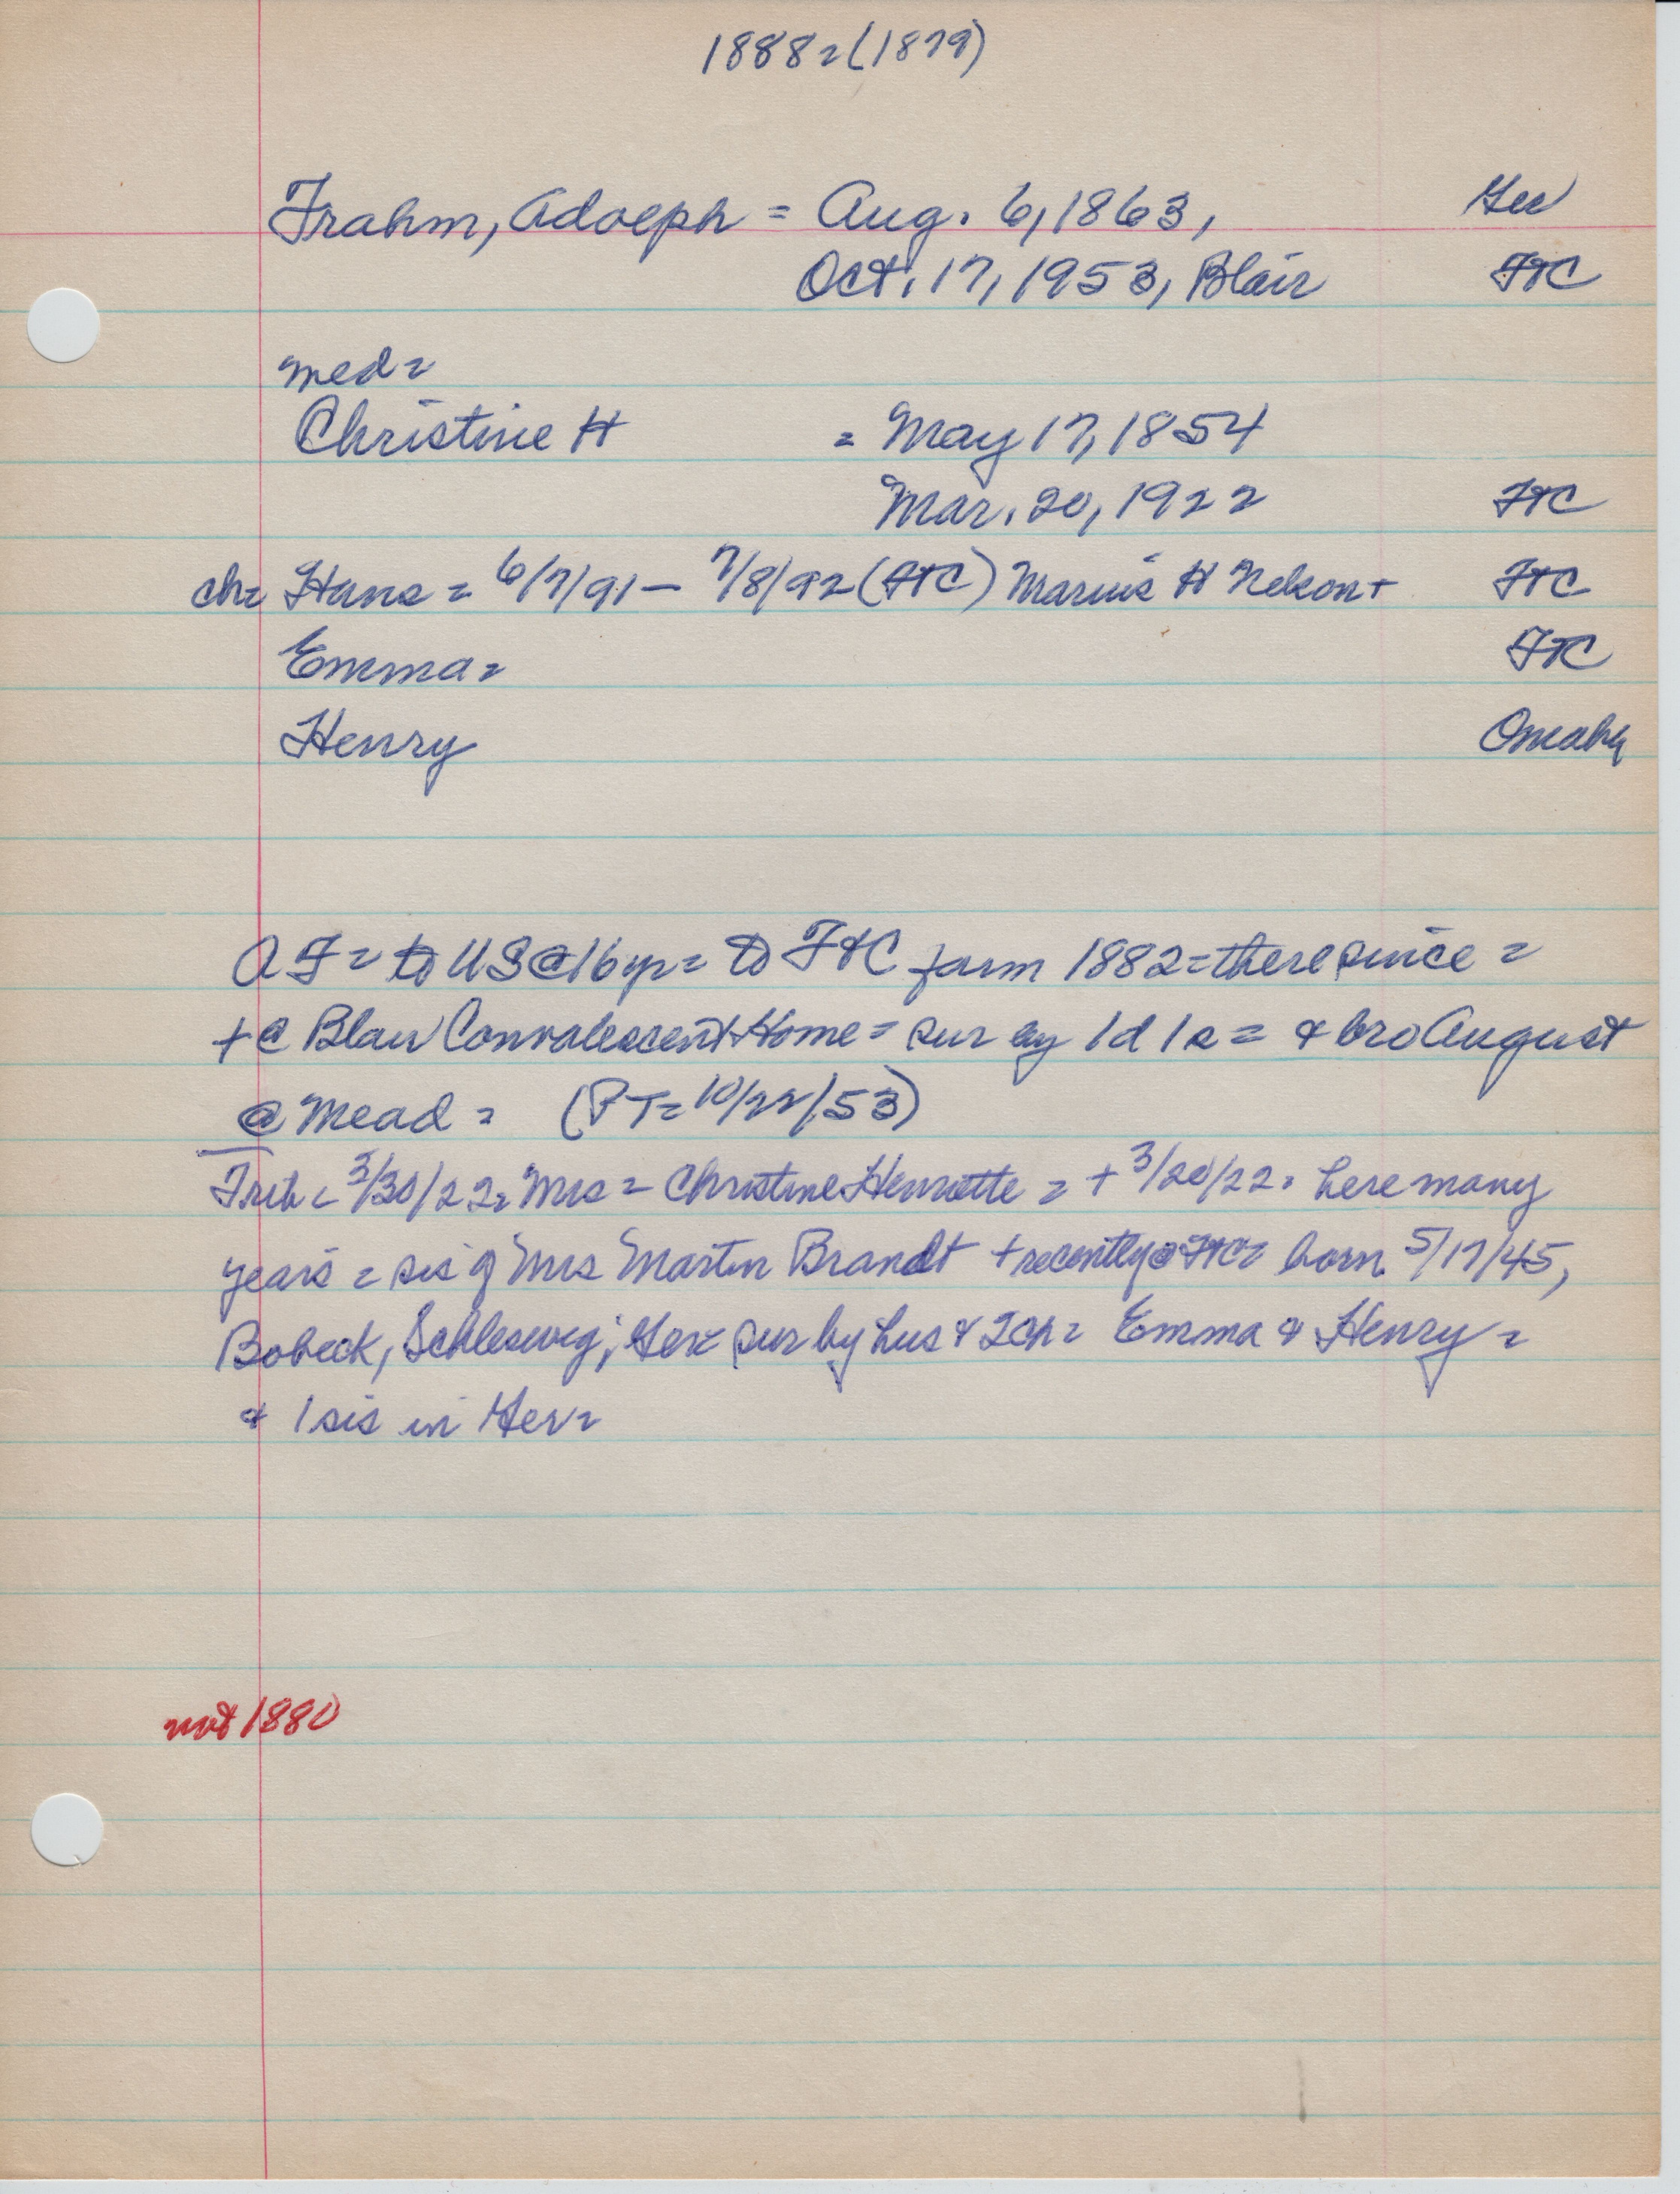 1888=(1879)
Frahm, Adolph = Aug. 6, 1863, Ger
Oct. 17, 1953, Blair FtC
med=
Christine H = May 17, 1854
Mar. 20, 1922 FtC
ch= Hans = 6/7/91 - 7/8/92 (FtC) Marius H Nelson + FtC
Emma= FtC
Henry Omaha
AF= to US@16yr= to FtC farm 1882=there since =
+@ Blair Convalescent Home = sur by 1d 1s = & bro August
@ Mead = (PT=10/22/53)
Trib = 3/30/22= Mrs = Christine Henriette = + 3/20/22= here many
years = sis of Mrs Martin Brandt + recently @ FtC= born 5/17/45,
Bobeck, Schleswig, Ger= sur by hus & 2ch= Emma & Henry =
& 1 sis in Ger=
not 1880